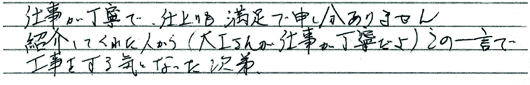 仕事が丁寧で、仕上りも満足で申し分ありません
紹介してくれた人から(大工さんが仕事が丁寧だよ)この一言で
工事をする気になった次第。